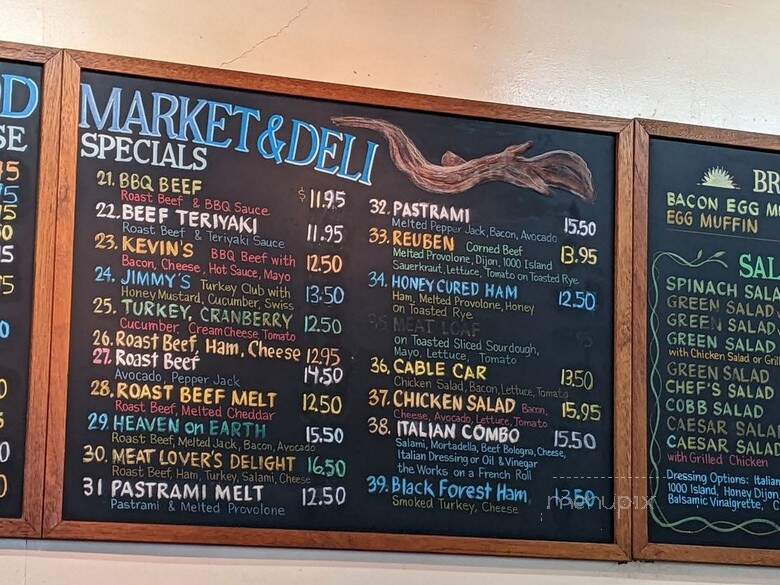 D
SE
MARKET & DELI
SPECIALS
21. BBQ BEEF $11.95
Roast Beef & BBQ Sauce
22. BEEF TERIYAKI 11.95
Roast Beef & Teriyaki Sauce
23. KEVIN'S BBQ Beef with
Bacon, Cheese, Hot Sauce, Mayo 12.50
24. JIMMY'S Turkey Club with
Honey Mustard, Cucumber, Swiss 13.50
25. TURKEY, CRANBERRY
Cucumber, Cream Cheese, Tomato 12.50
26. Roast Beef, Ham, Cheese 12.95
27. Roast Beef 14.50
Avocado, Pepper Jack
28. ROAST BEEF MELT 12.50
Roast Beef, Melted Cheddar
29. HEAVEN on EARTH 15.50
Roast Beef, Melted Jack, Bacon, Avocado
30. MEAT LOVER'S DELIGHT 16.50
Roast Beef, Ham, Turkey, Salami, Cheese
31 PASTRAMI MELT 12.50
Pastrami & Melted Provolone
32. PASTRAMI 15.50
Melted Pepper Jack, Bacon, Avocado
33. REUBEN Corned Beef 13.95
Melted Provolone, Dijon, 1000 Island
Sauerkraut, Lettuce, Tomato on Toasted Rye
34. HONEY CURED HAM 12.50
Ham, Melted Provolone, Honey
on Toasted Rye
35. MEAT LOAF
on Toasted Sliced Sourdough,
Mayo, Lettuce, Tomato
36. CABLE CAR 13.50
Chicken Salad, Bacon, Lettuce, Tomato
37. CHICKEN SALAD Bacon, 15.95
Cheese, Avocado, Lettuce, Tomato
38. ITALIAN COMBO 15.50
Salami, Mortadella, Beef Bologna, Cheese,
Italian Dressing or Oil & Vinegar
the Works on a French Roll
39. Black Forest Ham, 13.50
Smoked Turkey, Cheese
menupix
BR
BACON EGG M
EGG MUFFIN
SAL
SPINACH SALA
GREEN SALAD
GREEN SALAD
GREEN SALAD
with Chicken Salad or Gril
GREEN SALAD
CHEF'S SALAD
COBB SALAD
CAESAR SALAD
CAESAR SALAD
with Grilled Chicken
Dressing Options: Italian
1000 Island, Honey Dijon
Balsamic Vinaigrette,